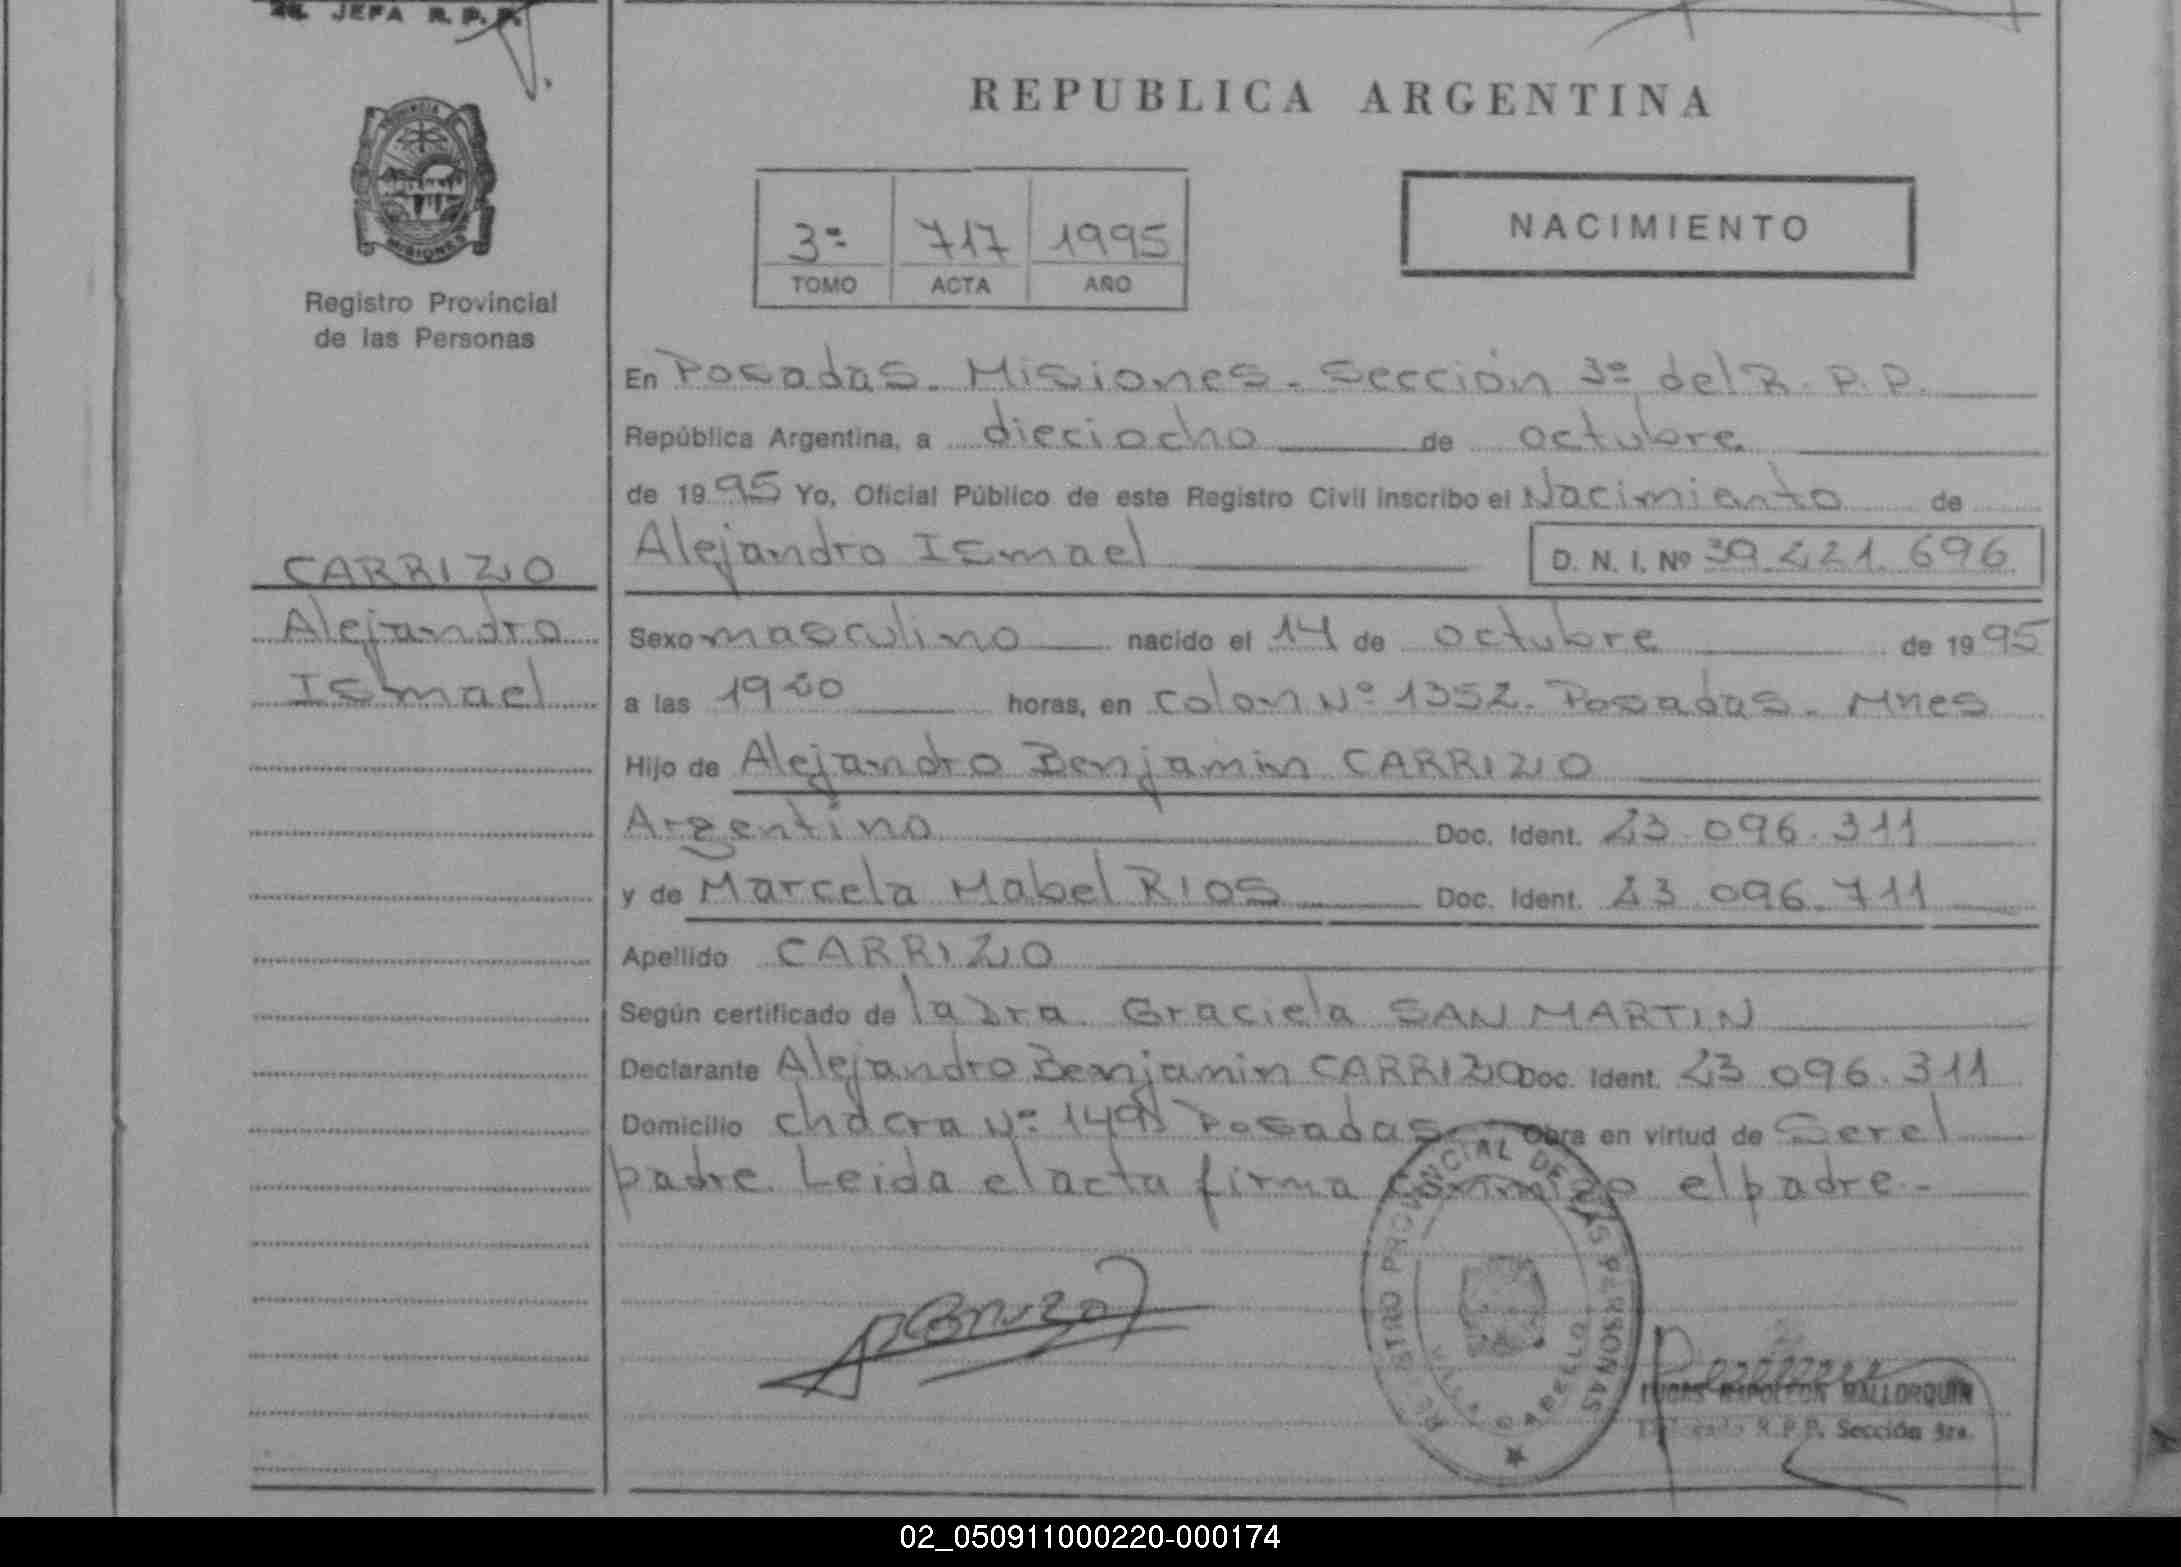 JEFA R. P. P.
REPUBLICA ARGENTINA
PROVINCIA
MISIONES
Registro Provincial
de las Personas
3ª 717 1995
TOMO ACTA AÑO
NACIMIENTO
En Posadas. Misiones. Sección 3ª del R. P. P.
República Argentina, a dieciocho de octubre
de 1995 Yo, Oficial Público de este Registro Civil inscribo el Nacimiento de
Alejandro Ismael D. N. I. Nº 39.221.696
CARRIZO
Alejandro
Ismael
Sexo masculino nacido el 14 de octubre de 1995
a las horas, en Colon Nº 1352. Posadas. Mnes
Hijo de Alejandro Benjamin CARRIZO
Argentino Doc. Ident. 23.096.311
y de Marcela Mabel RIOS Doc. Ident. 23.096.711
Apellido CARRIZO
Según certificado de la Dra. Graciela SAN MARTIN
Declarante Alejandro Benjamin CARRIZO Doc. Ident. 23 096.311
Domicilio chacra Nº 149 Posadas Obra en virtud de Ser el
padre. Leida el acta firma conmigo el padre.-
REGISTRO PROVINCIAL DE LAS PERSONAS
LUCAS NAPOLEON MALLORQUIN
Delegado R.P.P. Sección 3ra.
02_050911000220-000174